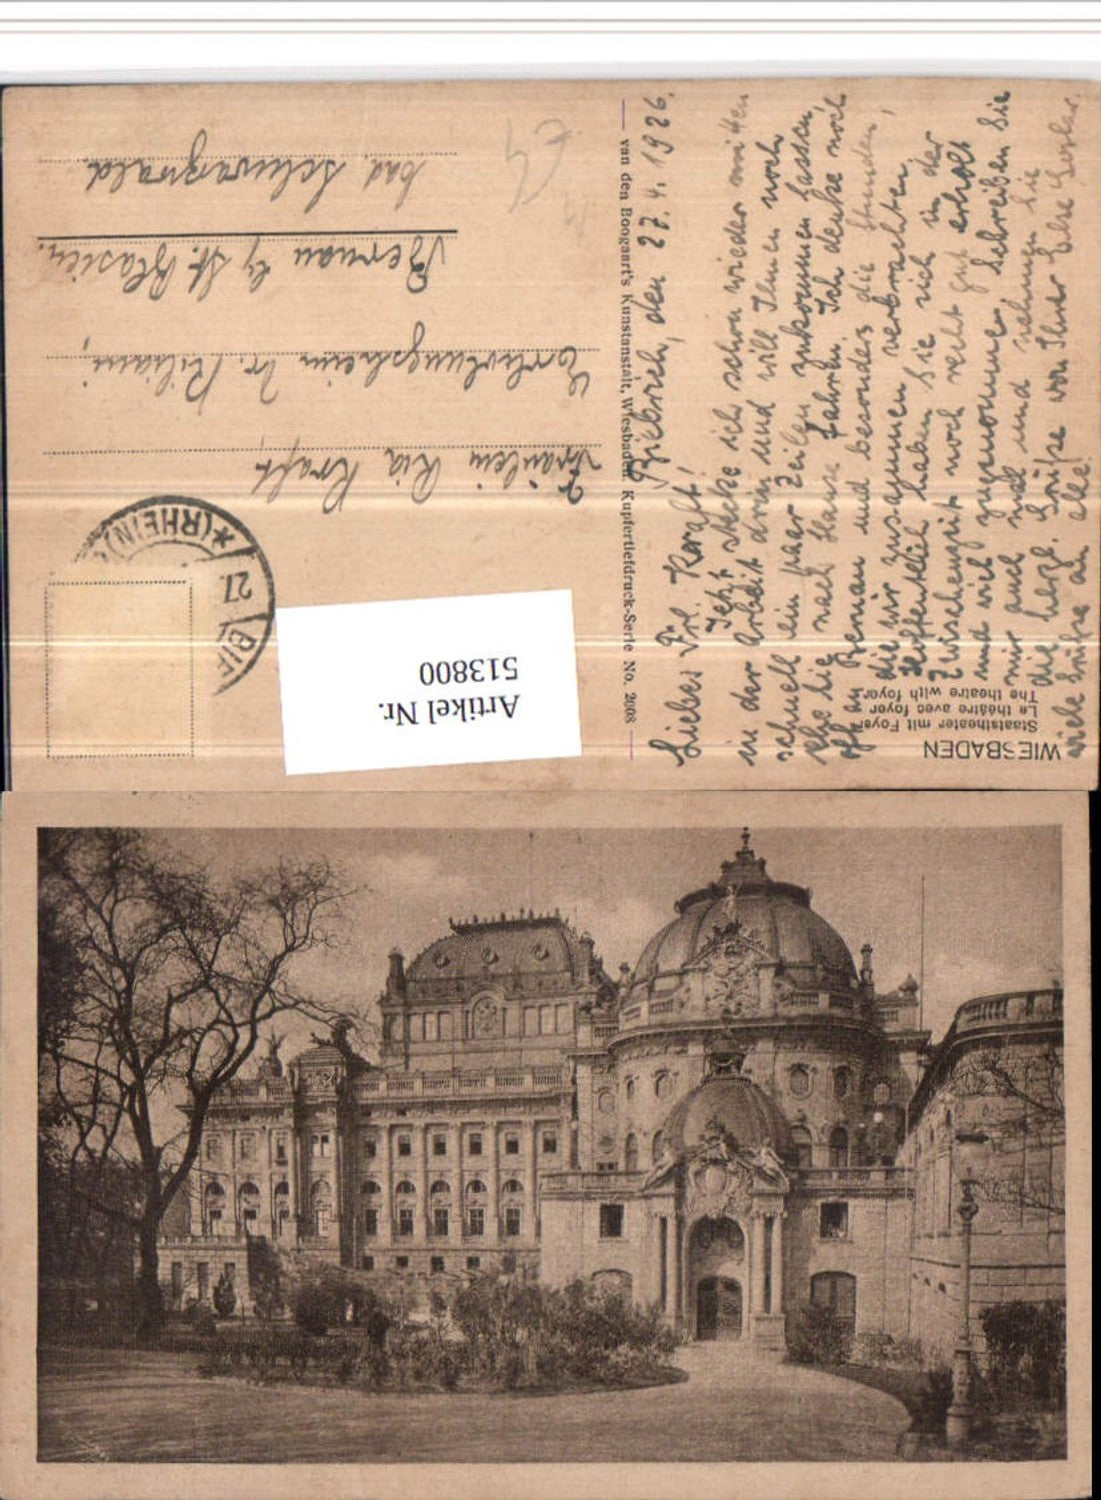 WIESBADEN
Staatstheater mit Foyer
Le théâtre avec foyer
The theatre with foyer
Biebrich, den 27.4.1926.
Liebes Frl. Kraft!
Jetzt stecke ich schon wieder mitten
in der Arbeit drin und will Ihnen noch
schnell ein paar Zeilen zukommen lassen,
ehe Sie nach Hause fahren. Ich denke noch
oft an Bernau und besonders die Stunden,
die wir zusammen verbrachten.
Hoffentlich haben Sie sich in der
Zwischenzeit noch recht gut erholt
und viel zugenommen. Schreiben Sie
mir auch mal und nehmen Sie
die herzl. Grüße von Ihrer Else
viele Grüße an alle.
van den Boogaart's Kunstanstalt, Wiesbaden. Kupfertiefdruck-Serie No. 2008
BIE
27.
(RHEIN)
Fräulein Ria Kraft
Erholungsheim Dr. Kiliani,
Bernau b/ St. Blasien.
bad. Schwarzwald
Artikel Nr.
513800